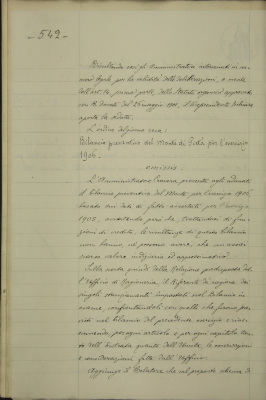 - 542 -
Risultando così gli Amministratori intervenuti in numero legale per la validità delle deliberazioni, a mente
dell'art. prima parte, dello Statuto organico approvato
con R. Decreto del 26 maggio 1901, il Vicepresidente dichiara
aperta la seduta.
L'ordine del giorno reca:
Bilancio preventivo del Monte di Pietà per l'esercizio
1906.
omissis
L'Amministratore presenta nell'adunanza
il bilancio preventivo del Monte per l'esercizio 1906,
basato sui dati di fatto accertati per l'esercizio
1905, avvertendo però che, trattandosi di funzioni
di credito, le risultanze di questo bilancio
non hanno, nè possono avere, che un
valore indiziario ed approssimativo.
Sulla scorta quindi della Relazione predisposta dall'
Ufficio di Ragioneria, il Referente dà ragione dei
singoli stanziamenti impostati nel Bilancio in
esame, confrontandoli con quelli che furono previsti
nel bilancio del precedente esercizio e riassumendo,
per ogni articolo e per ogni capitolo tanto
dell'Entrata quanto dell'Uscita, le osservazioni
e considerazioni fatte dall'Ufficio.
Aggiunge il Relatore che nel proposto schema di